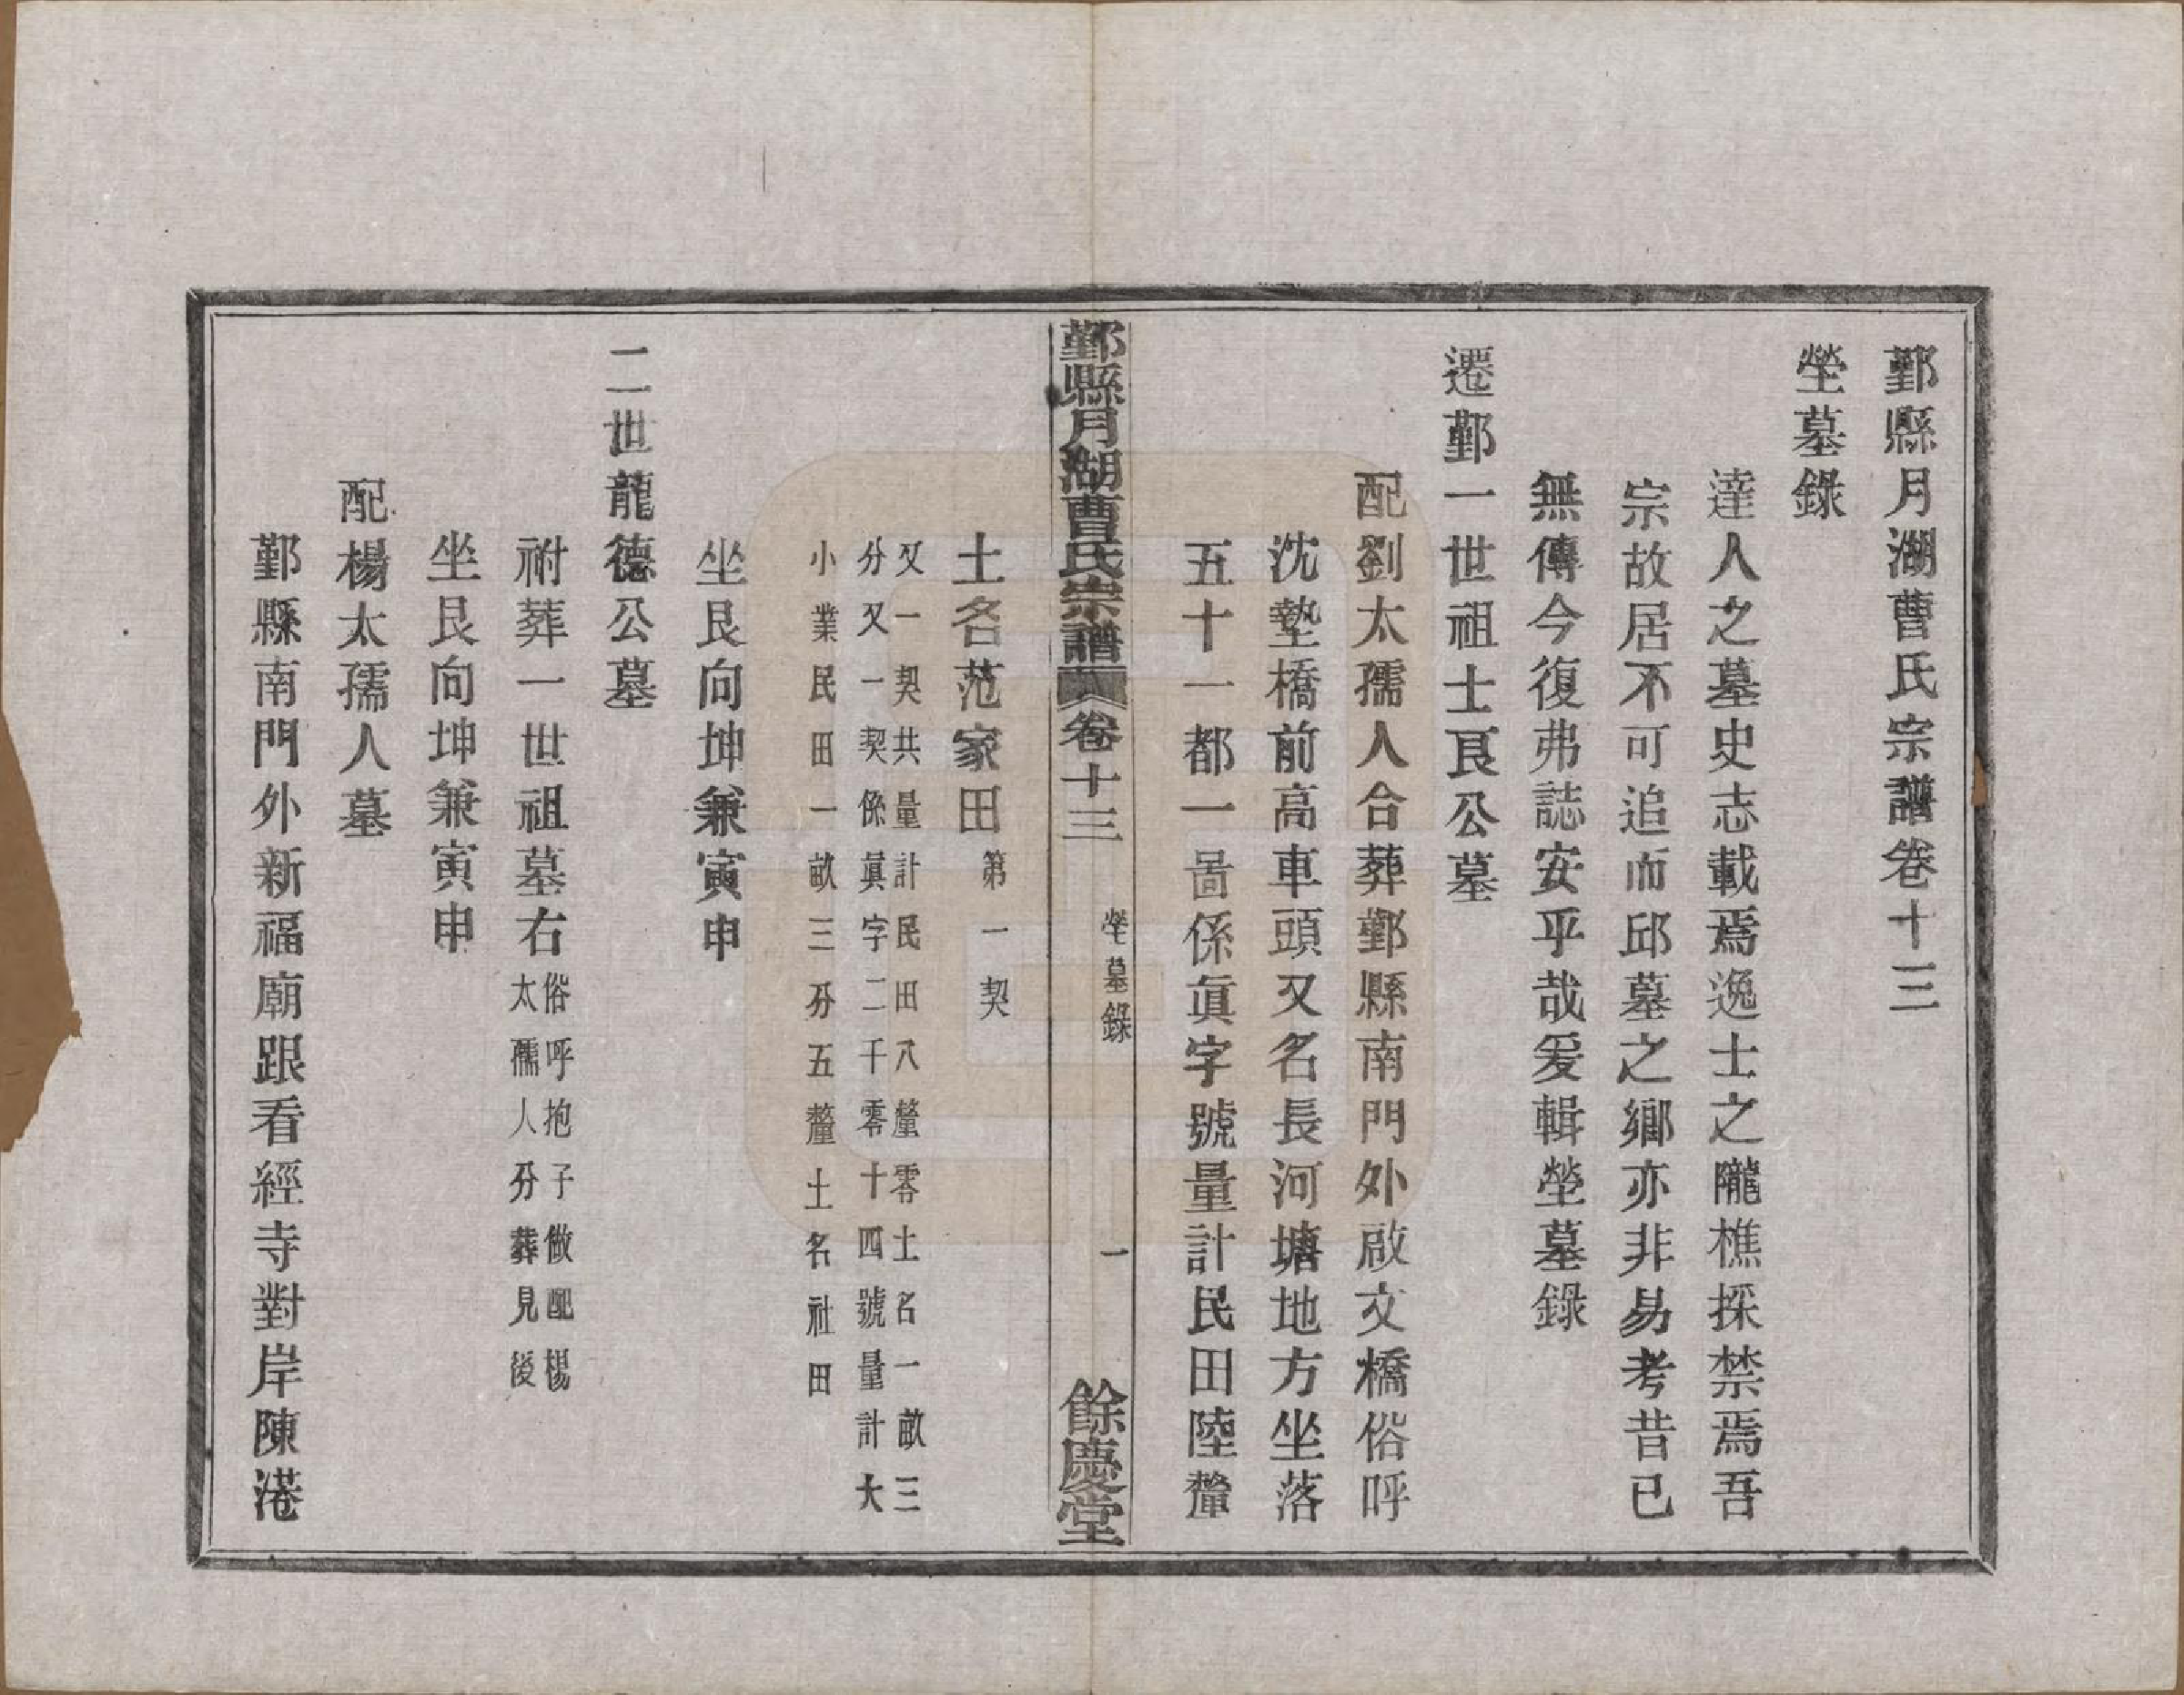 鄞縣月湖曹氏宗譜卷十三
塋墓錄
達人之墓史志載焉逸士之隴樵採禁焉吾
宗故居不可追而邱墓之鄉亦非易考昔已
無傳今復弗誌安乎哉爰輯塋墓錄
遷鄞一世祖士艮公墓
配劉太孺人合葬鄞縣南門外啟文橋俗呼
沈墊橋前高車頭又名長河塘地方坐落
五十一都一啚係眞字號量計民田陸釐
鄞縣月湖曹氏宗譜 卷十三 塋墓錄 一 餘慶堂
土名范家田第一契
又一契共量計民田八釐零土名一畝三
分又一契係眞字二千零十四號量計大
小業民田一畝三分五釐土名社田
坐艮向坤兼寅申
二世龍德公墓
祔葬一世祖墓右俗呼抱子做配楊
太孺人分葬見後
坐艮向坤兼寅申
配楊太孺人墓
鄞縣南門外新福廟跟看經寺對岸陳港